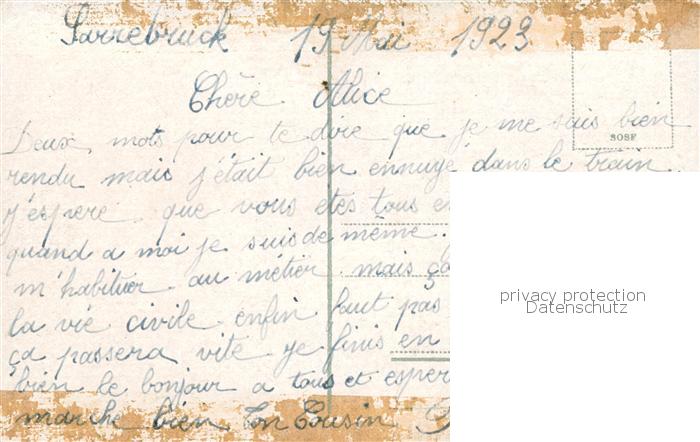 Sarrebruck 19 Mai 1923
Chère Alice
Deux mots pour te dire que je me suis bien
SOSF
rendu mais j'était bien ennuyé dans le train
j'espere que vous etes tous en
quand a moi je suis de même.
m'habituer au métier mais ça
la vie civile enfin faut pas
privacy protection
Datenschutz
ça passera vite je finis en
bien le bonjour a tous et esper
marche bien Ton Cousin